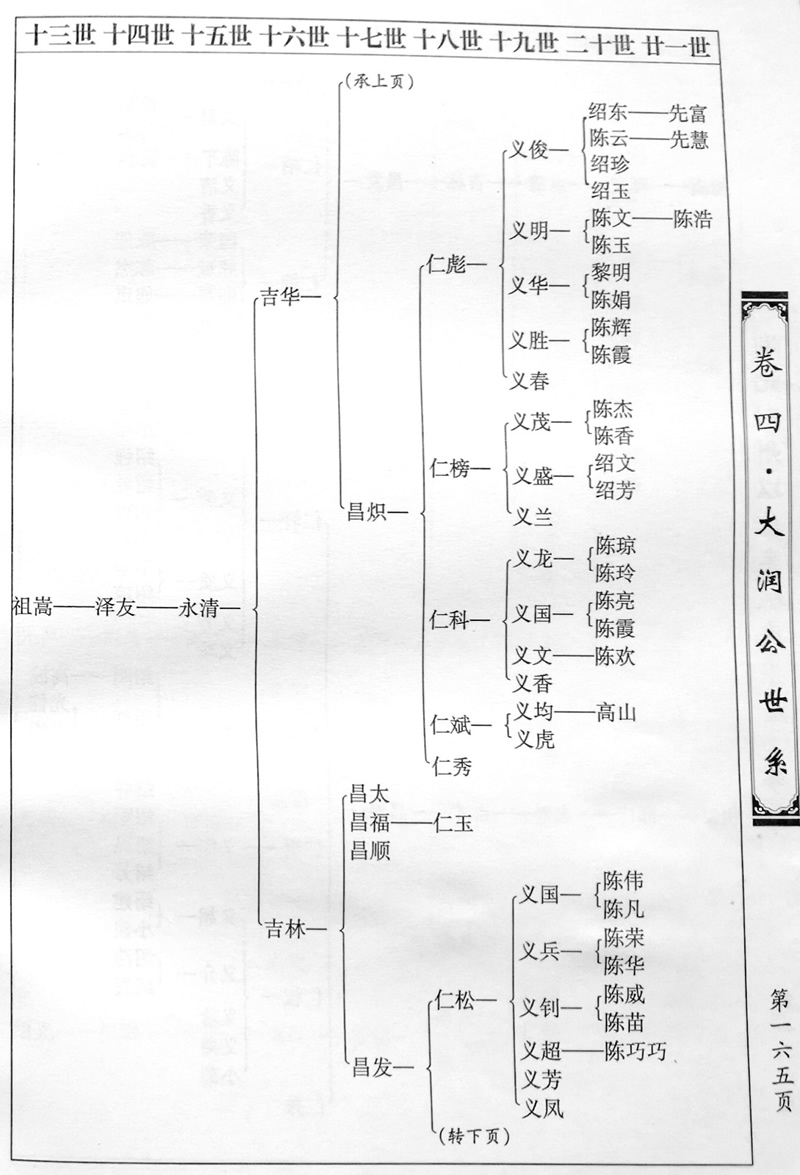 十三世 十四世 十五世 十六世 十七世 十八世 十九世 二十世 廿一世
(承上页)
绍东——先富
义俊—
陈云——先慧
绍珍
绍玉
义明—
陈文——陈浩
陈玉
仁彪—
义华—
黎明
陈娟
吉华—
义胜—
陈辉
陈霞
义春
义茂—
陈杰
陈香
仁榜—
义盛—
绍文
绍芳
昌炽—
义兰
义龙—
陈琼
陈玲
祖嵩——泽友——永清—
仁科—
义国—
陈亮
陈霞
义文——陈欢
义香
仁斌—
义均——高山
义虎
仁秀
昌太
昌福——仁玉
昌顺
吉林—
义国—
陈伟
陈凡
义兵—
陈荣
陈华
仁松—
义钊—
陈威
陈苗
昌发—
义超——陈巧巧
义芳
义凤
(转下页)
卷四·大润公世系
第一六五页